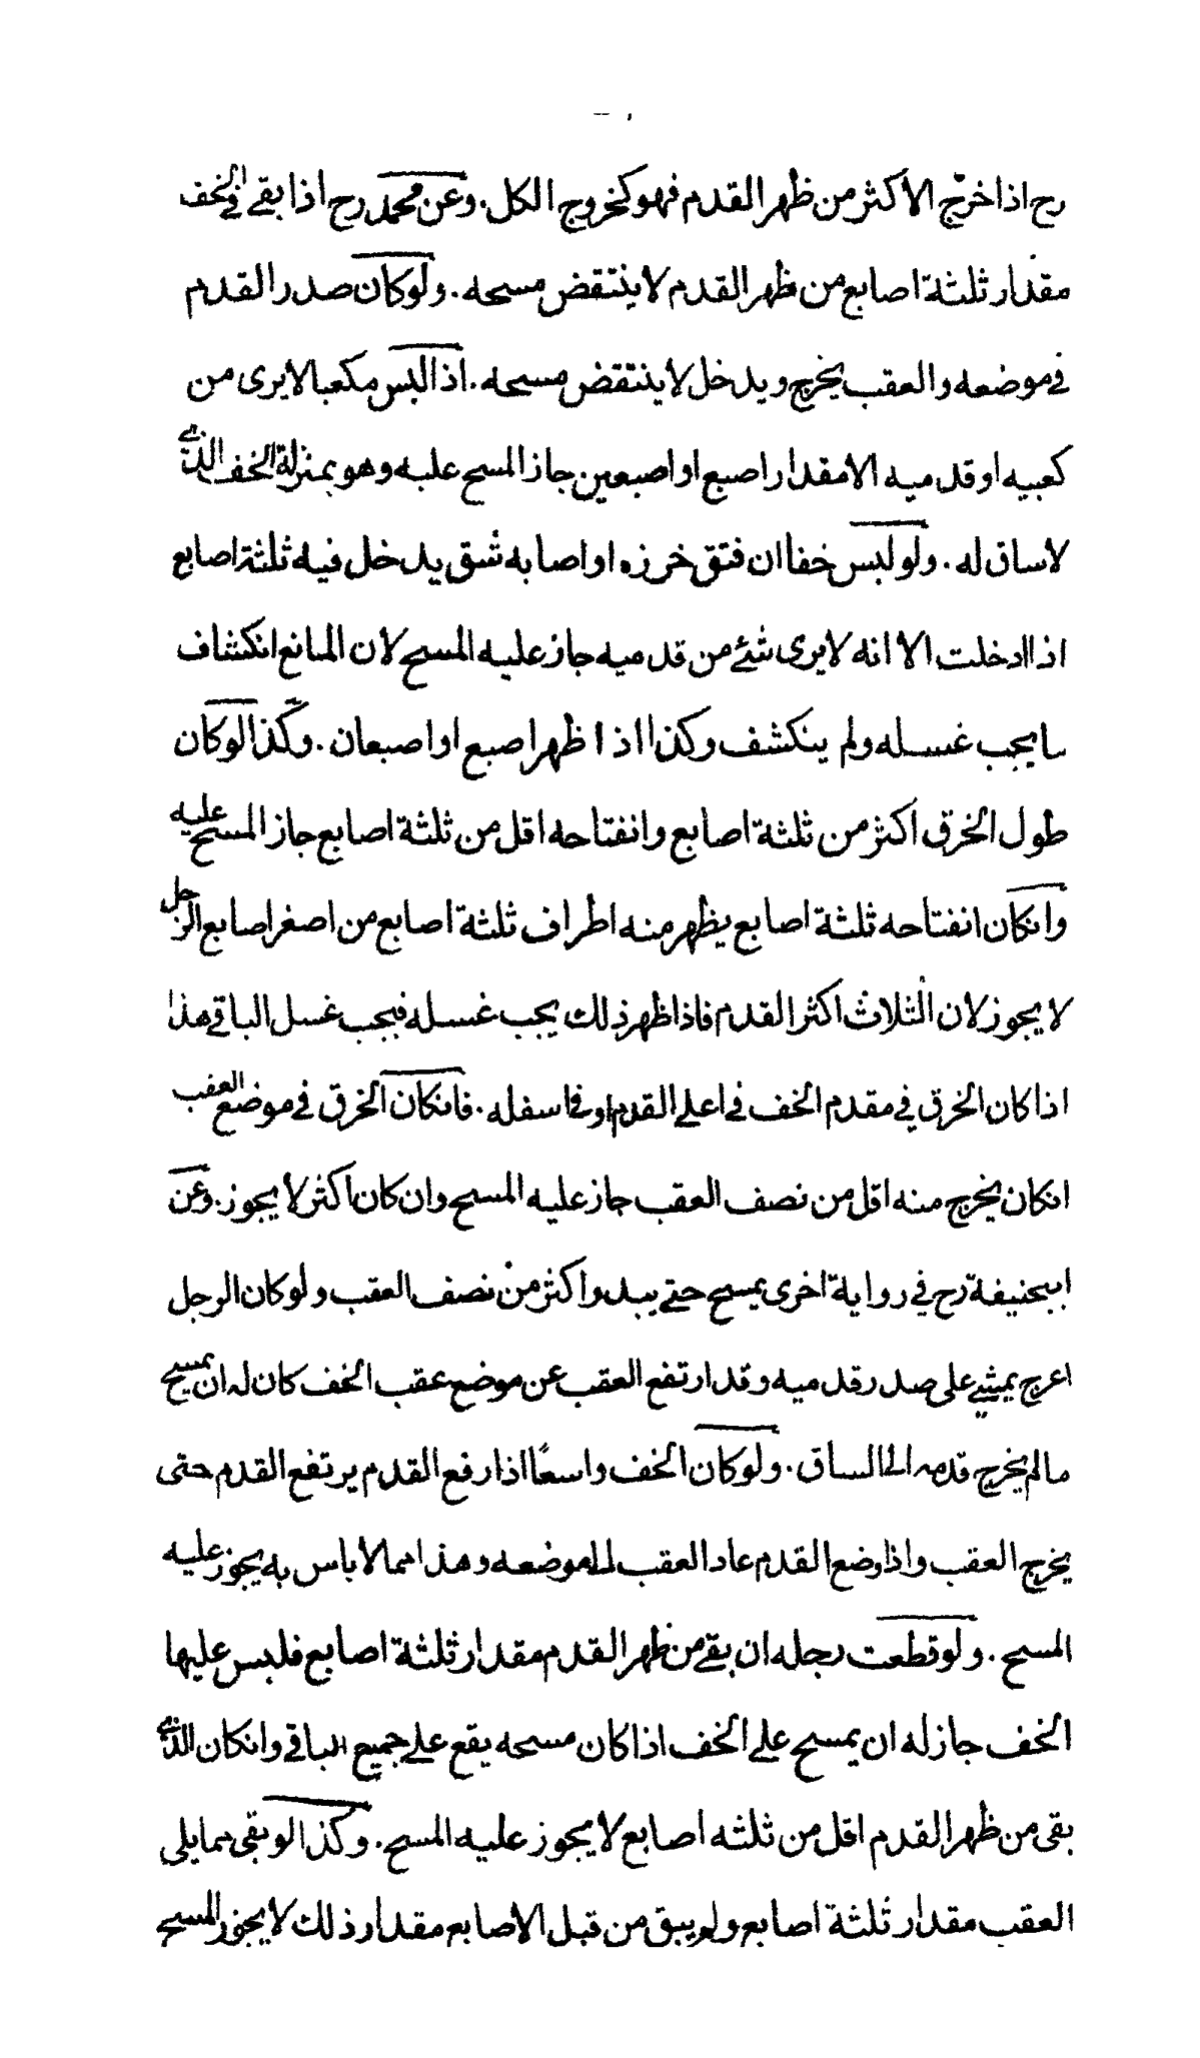 رح اذا خرج الاكثر من ظهر القدم فهو كخروج الكل. وعن محمد رح اذا بقي في الخف
مقدار ثلثة اصابع من ظهر القدم لا ينتقض مسحه. ولو كان صدر القدم
في موضعه والعقب يخرج ويدخل لا ينتقض مسحه. اذا لبس مكعبا لا يرى من
كعبيه او قدميه الا مقدار اصبع او اصبعين جاز المسح عليه وهو بمنزلة الخف الذي
لا ساق له. ولو لبس خفا ان فتق خرزه او اصابه شق يدخل فيه ثلثة اصابع
اذا ادخلت الا انه لا يرى شئ من قدميه جاز عليه المسح لان المانع انكشاف
ما يجب غسله ولم ينكشف وكذا اذا ظهر اصبع او اصبعان. وكذا لو كان
طول الخرق اكثر من ثلثة اصابع وانفتاحه اقل من ثلثة اصابع جاز المسح عليه
وانكان انفتاحه ثلثة اصابع يظهر منه اطراف ثلثة اصابع من اصغر اصابع الرجل
لا يجوز لان الثلاث اكثر القدم فاذا ظهر ذلك يجب غسله فيجب غسل الباقي هذا
اذا كان الخرق في مقدم الخف في اعلي القدم او في اسفله. فانكان الخرق في موضع العقب
انكان يخرج منه اقل من نصف العقب جاز عليه المسح وان كان اكثر لا يجوز. وعن
ابيحنيفة رح في رواية اخرى يمسح حتي يبدو اكثر من نصف العقب ولو كان الرجل
اعرج يمشي على صدر قدميه وقد ارتفع العقب عن موضع عقب الخف كان له ان يمسح
ما لم يخرج قدمه الى الساق. ولو كان الخف واسعًا اذا رفع القدم يرتفع القدم حتى
يخرج العقب واذا وضع القدم عاد العقب الى موضعه وهذا مما لا باس به يجوز عليه
المسح. ولو قطعت رجله ان بقي من ظهر القدم مقدار ثلثة اصابع فلبس عليها
الخف جاز له ان يمسح علي الخف اذا كان مسحه يقع علي جميع الباقي وانكان الذي
بقى من ظهر القدم اقل من ثلثه اصابع لا يجوز عليه المسح. وكذا لو بقى مما يلى
العقب مقدار ثلثة اصابع ولم يبق من قبل الاصابع مقدار ذلك لا يجوز المسح